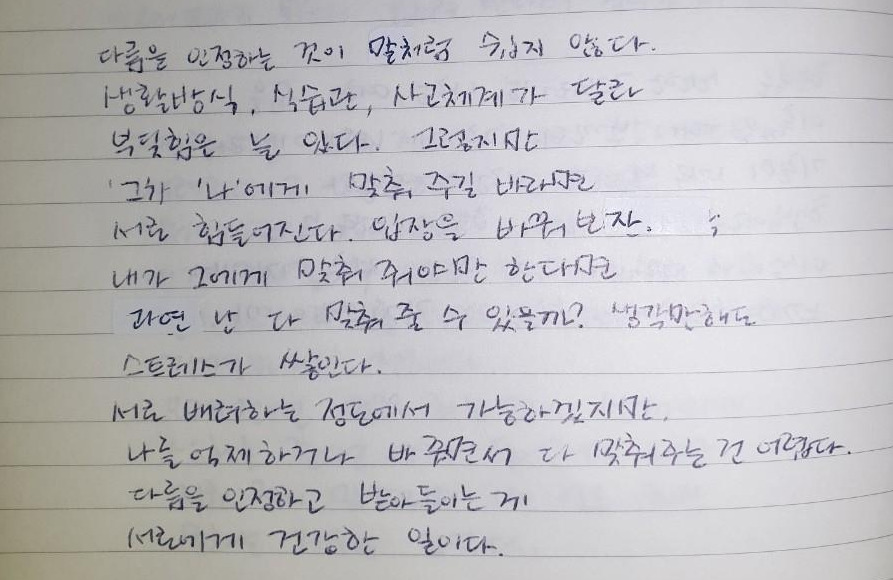 다름을 인정하는 것이 말처럼 쉽지 않다.
생활방식, 식습관, 사고체계가 달라
부딪힘은 늘 있다. 그렇지만
'그'가 '나'에게 맞춰 주길 바라면
서로 힘들어진다. 입장을 바꿔 보잔.
내가 그에게 맞춰 줘야만 한다면
과연 난 다 맞춰 줄 수 있을까? 생각만해도
스트레스가 쌓인다.
서로 배려하는 정도에서 가능하겠지만,
나를 억제하거나 바꾸면서 다 맞춰주는 건 어렵다.
다름을 인정하고 받아들이는 게
서로에게 건강한 일이다.